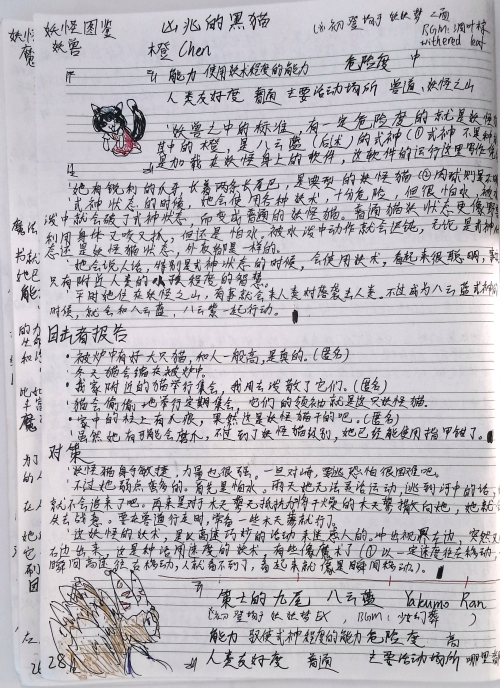 妖怪图鉴 凶兆的黑猫
妖兽 橙 Chen
初登场于 妖妖梦 2面
BGM: withered leaf
能力 使用妖术程度的能力 危险度 中
人类友好度 普通 主要活动场所 兽道、妖怪之山
妖兽之中的标准，有一定危险度的就是妖怪
其中的橙，是八云蓝（后述）的式神（①式神不是种
是加载在妖怪身上的软件，这软件的运行这里写作
她有锐利的爪牙，长着两条长尾巴，是典型的妖怪猫②肉球则是
式神状态的时候，她会使用各种妖术，十分危险，但很怕水，被
泼中就会破了式神状态，而变成普通的妖怪猫。普通猫妖状态更像野
利用身体又咬又抓，但还是怕水，被水泼中动作就会迟钝，无论是式神
态还是妖怪猫状态，外表都是一样的。
她会说人话，特别是式神状态的时候，会使用妖术，看起来很聪明，
只有附近人类的小孩程度的智慧。
平时她住在妖怪之山，有事就会来人类村庄袭击人类。不过成为八云蓝式神的
时候，就会和八云蓝，八云紫一起行动。
目击者报告
·被炉中有好大只猫，和人一般高，是真的。（匿名）
·冬天猫会缩在被炉中。
·我家附近的猫举行集会，我用去泼散了它们。（匿名）
·猫会偷偷地举行定期集会，它们的领袖就是这只妖怪猫。
·家中的柱上有爪痕，果然这是妖怪猫干的吧。（匿名）
·虽然她有可能会磨爪，不过到了妖怪猫级别，她已经能使用指甲钳了。
对策
妖怪猫身手敏捷，力量也很强。一旦对峙，要逃恐怕很困难吧。
不过她弱点蛮多的。首先是怕水。雨天她无法灵活运动，逃到河中的话，
就不会追来了吧。再来是对于木天蓼无抵抗力，将干燥的木天蓼撒向她，她就
失去战意。要在兽道行走时，带备一些木天蓼就行了。
这妖怪的妖术，是以高速巧妙的活动来迷惑人的。冲出视界左边，突然又
右边出来，这是种活用速度的妖术，有些像魔术了（①以一定速度往左移动，
瞬间高速往右移动，人就看不到了，看起来就像是瞬间移动）。
策士的九尾 八云蓝 Yakumo Ran
初登场于 妖妖梦EX，BGM：少女幻葬
能力 驱使式神程度的能力 危险度 高
28 人类友好度 普通 主要活动场所 哪里都